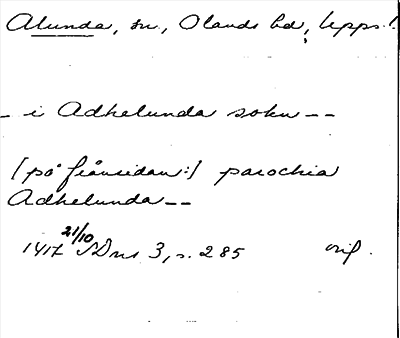 Alunda, sn, Olands hd, Upps.l.
_ i Adhelunda sokn _ _
[på frånsidan:] parochia
Adhelunda _ _
1417 21/10 SDns 3, s. 285 orig.